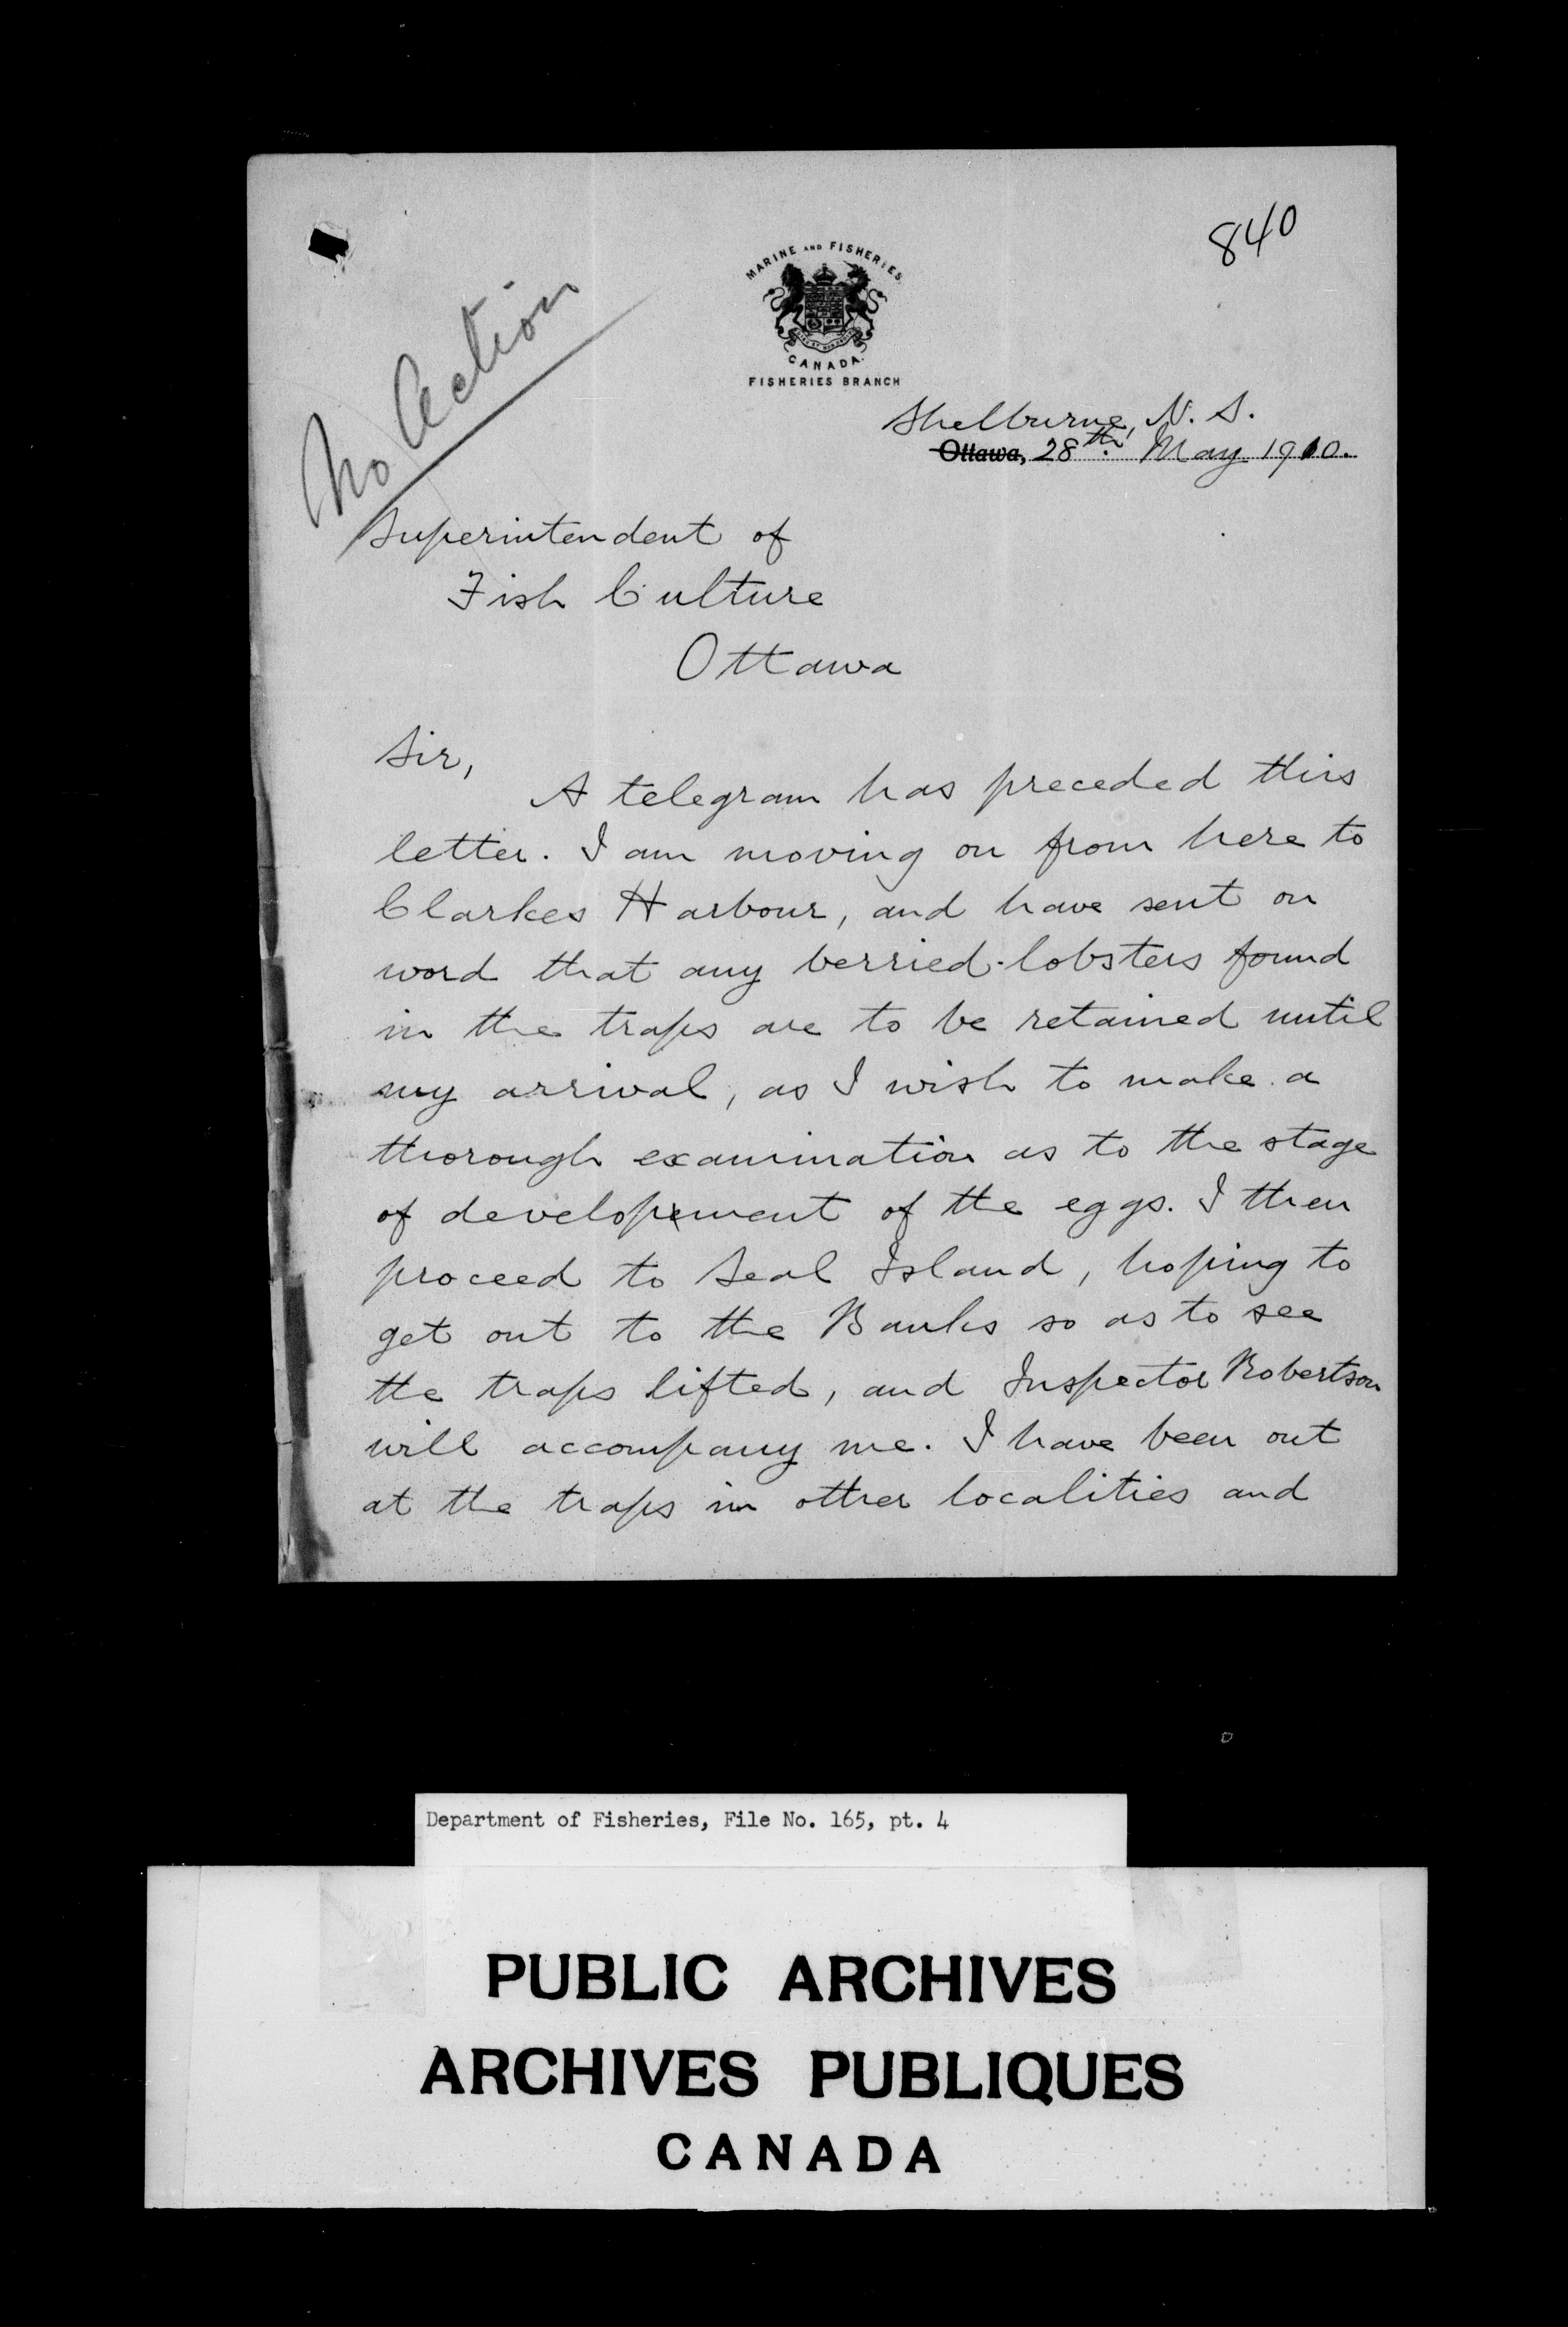 840
No Action
MARINE AND FISHERIES
CANADA.
FISHERIES BRANCH
Shelburne, N. S.
Ottawa, 28th. May 1910.
Superintendent of
Fish Culture
Ottawa
Sir,
A telegram has preceded this
letter. I am moving on from here to
Clarkes Harbour, and have sent on
word that any berried-lobsters found
in the traps are to be retained until
my arrival, as I wish to make a
thorough examination as to the stage
of development of the eggs. I then
proceed to Seal Island, hoping to
get out to the Banks so as to see
the traps lifted, and Inspector Robertson
will accompany me. I have been out
at the traps in other localities and
Department of Fisheries, File No. 165, pt. 4
PUBLIC ARCHIVES
ARCHIVES PUBLIQUES
CANADA